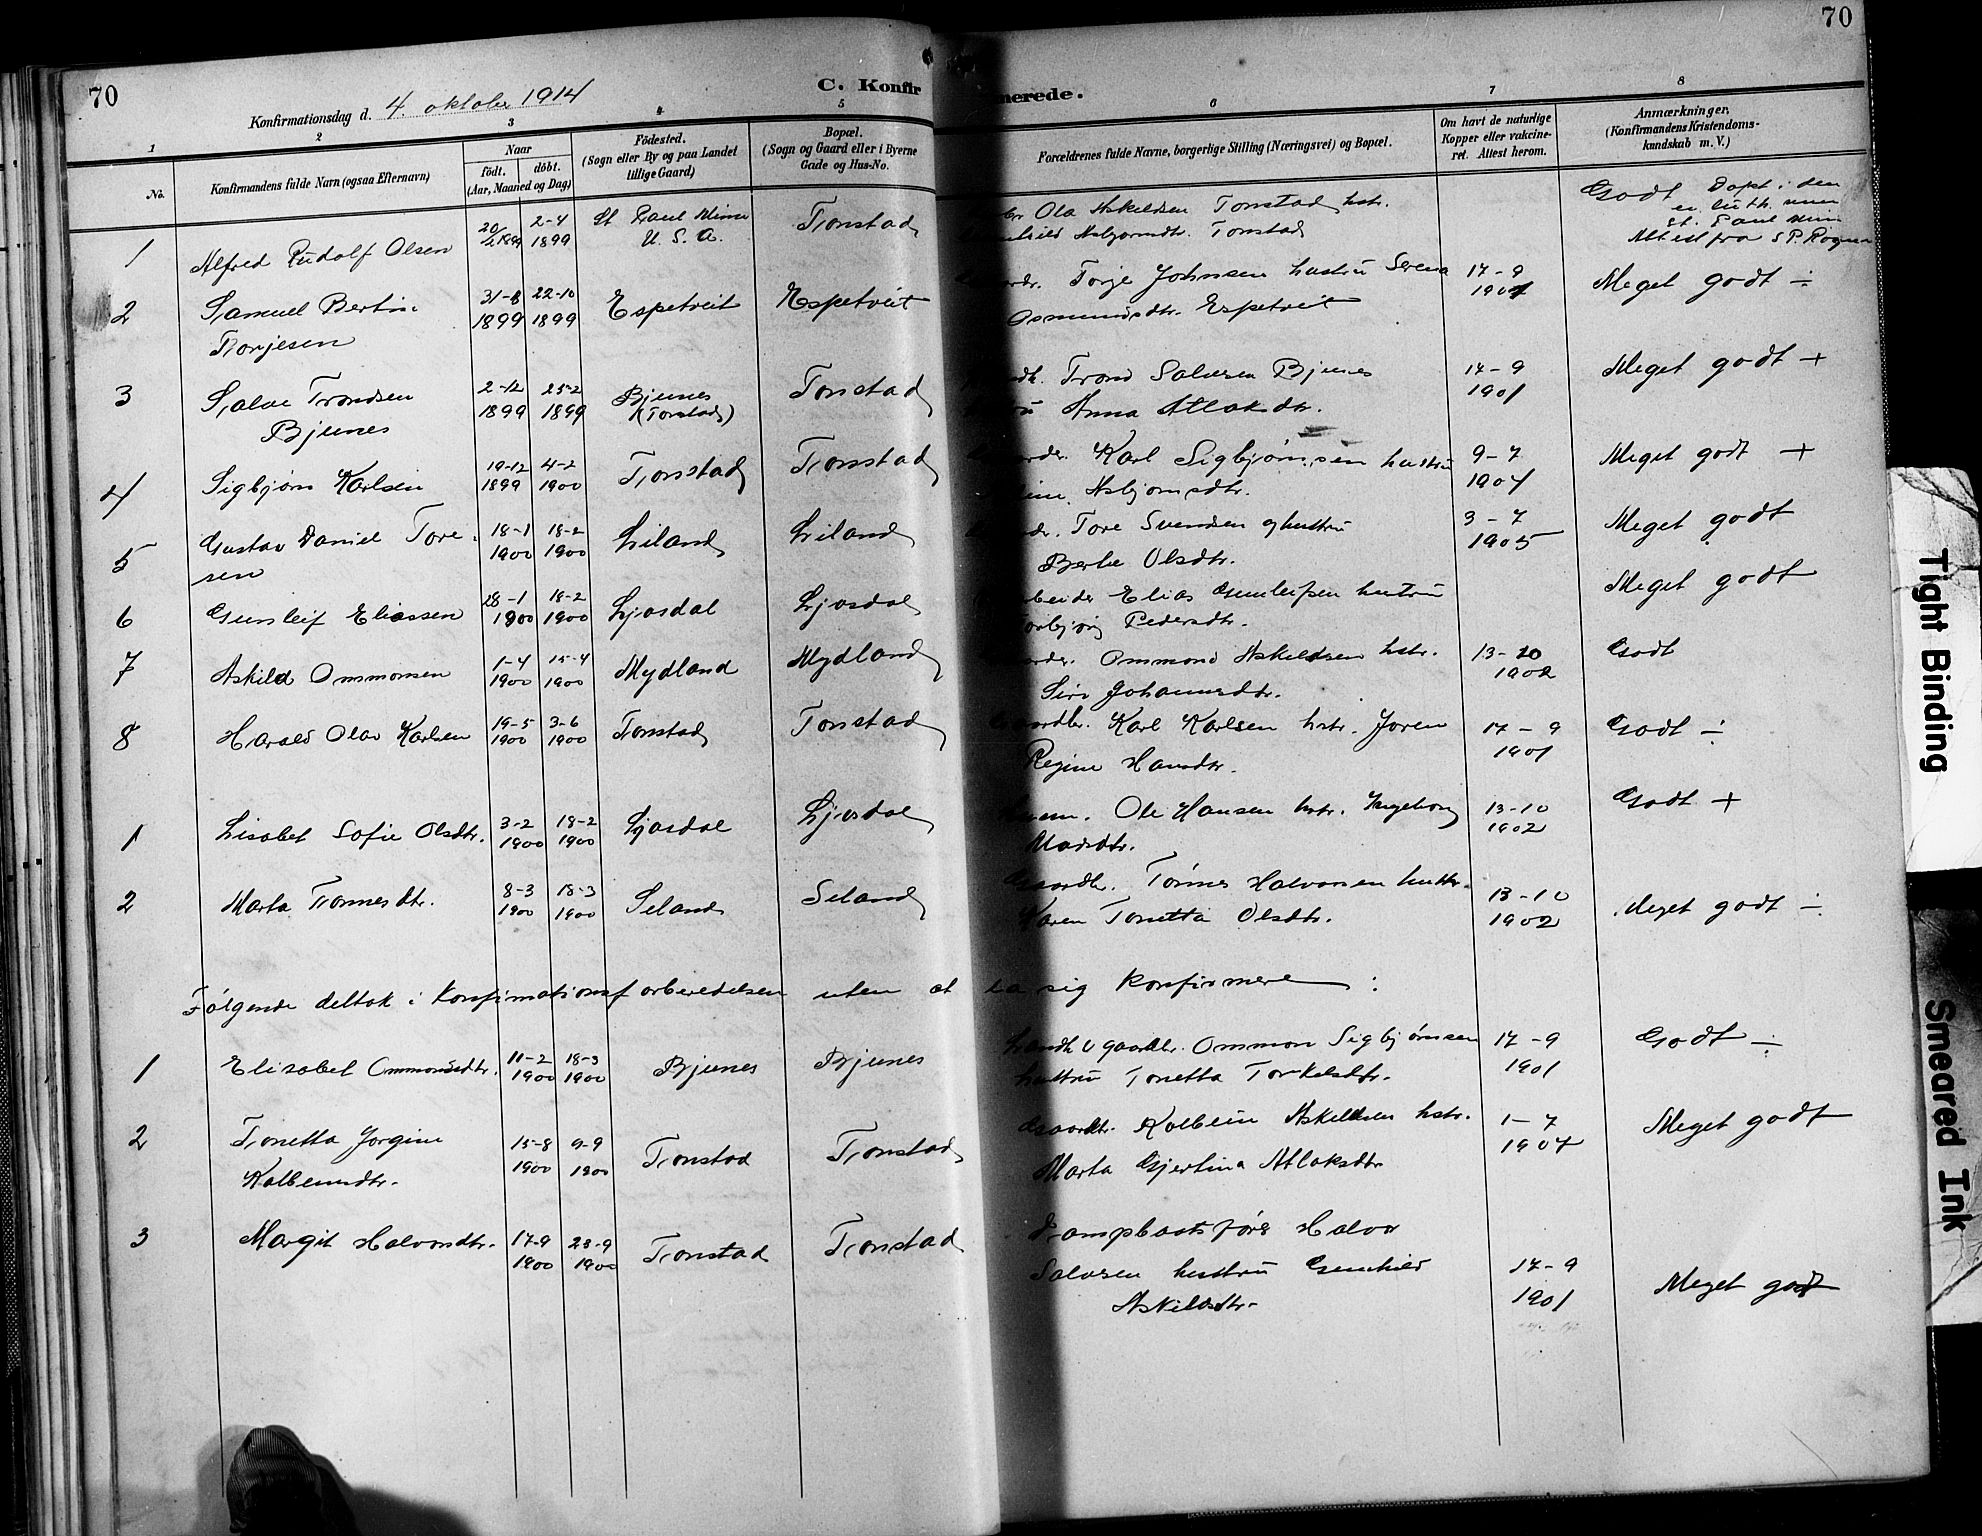 70
70
Konfirmationsdag d. 4. oktober 1914
C. Konfir
merede.
1
2
3
4
5
6
7
8
No.
Konfirmandens fulde Navn (ogsaa Efternavn)
Naar
födt. döbt.
(Aar, Maaned og Dag)
Födested.
(Sogn eller By og paa Landet
tillige Gaard)
Bopæl.
(Sogn og Gaard eller i Byerne
Gade og Hus-No.
Forældrenes fulde Navne, borgerlige Stilling (Næringsvei) og Bopæl.
Om havt de naturlige
Kopper eller vakcine-
ret. Attest herom.
Anmærkninger,
(Konfirmandens Kristendoms-
kundskab m. V.)
1 Alfred Rudolf Olsen 20/2 1899 2-4 1899 St Paul Minn U. S. A. Tonstad
Ola Askeldsen Tonstad hstr.
Asbjornsdtr. Tonstad
Godt Døpt i den
ev. luth. men
St. Paul Min
Attest fra S P. Rogne
2 Samuel Bertin 31-8 1899 22-10 1899 Espetveit Espetveit
Torjesen
Torje Johnsen hustru Serena
Osmundsdtr. Espetveit
17-9
1901
Meget godt ÷
3 Salve Trondsen 2-12 1899 25-2 1899 Bjunes (Tonstad) Tonstad
Bjunes
Trond Salvesen Bjunes
Anna Atlaksdtr.
14-9
1901
Meget godt +
4 Sigbjørn Karlsen 19-12 1899 4-2 1900 Tonstad Tonstad
Karl Sigbjørnsen hustru
Asbjornsdtr.
9-7
1907
Meget godt +
5 Gustav Daniel Tore- 18-1 1900 18-2 1900 Liland Liland
sen
Tore Svendsen og hustru
Berte Olsdtr.
3-7
1905
Meget godt
6 Gunleif Eliassen 28-1 1900 18-2 1900 Ljosdal Ljosdal
Elias Gunleifsen hustru
Pedersdtr.
Meget godt
7 Askild Ommonsen 1-4 1900 15-4 1900 Mydland Mydland
Ommond Askeldsen hstr.
Siri Johannesdtr.
13-10
1902
Godt
8 Harald Olav Karlsen 19-5 1900 3-6 1900 Tonstad Tonstad
Gaardbr. Karl Karlsen hstr. Joren
Regine Hansdtr.
17-9
1901
Godt ÷
1 Lisabet Sofie Olsdtr. 3-2 1900 18-2 1900 Ljosdal Ljosdal
Ole Hansen hstr. Ingeborg
Marsdtr.
13-10
1902
Godt +
2 Marta Tonnesdtr. 8-3 1900 18-3 1900 Seland Seland
Gaardbr. Tønnes Halvorsen hustr.
Karen Tonetta Olsdtr.
13-10
1902
Meget godt ÷
Følgende deltok i Konfirmationsforberedelsen uten at la sig konfirmere:
1 Elisabet Ommonsdtr. 11-2 1900 18-3 1900 Bjunes Bjunes
Landh. & gaardbr. Ommon Sigbjørnsen
hustru Tonetta Torkelsdtr.
17-9
1901
Godt ÷
2 Tonetta Jorgine 15-8 1900 9-9 1900 Tonstad Tonstad
Kolbeinsdtr.
Gaardbr. Kolbein Askildsen hstr.
Marta Gjertina Atlaksdtr
1-7
1907
Meget godt
3 Margit Halvorsdtr. 17-9 1900 23-9 1900 Tonstad Tonstad
Dampbaatsfører Halvor
Salvesen hustru Gunhild
Askildsdtr.
17-9
1901
Meget godt
Tight Binding
Smeared Ink